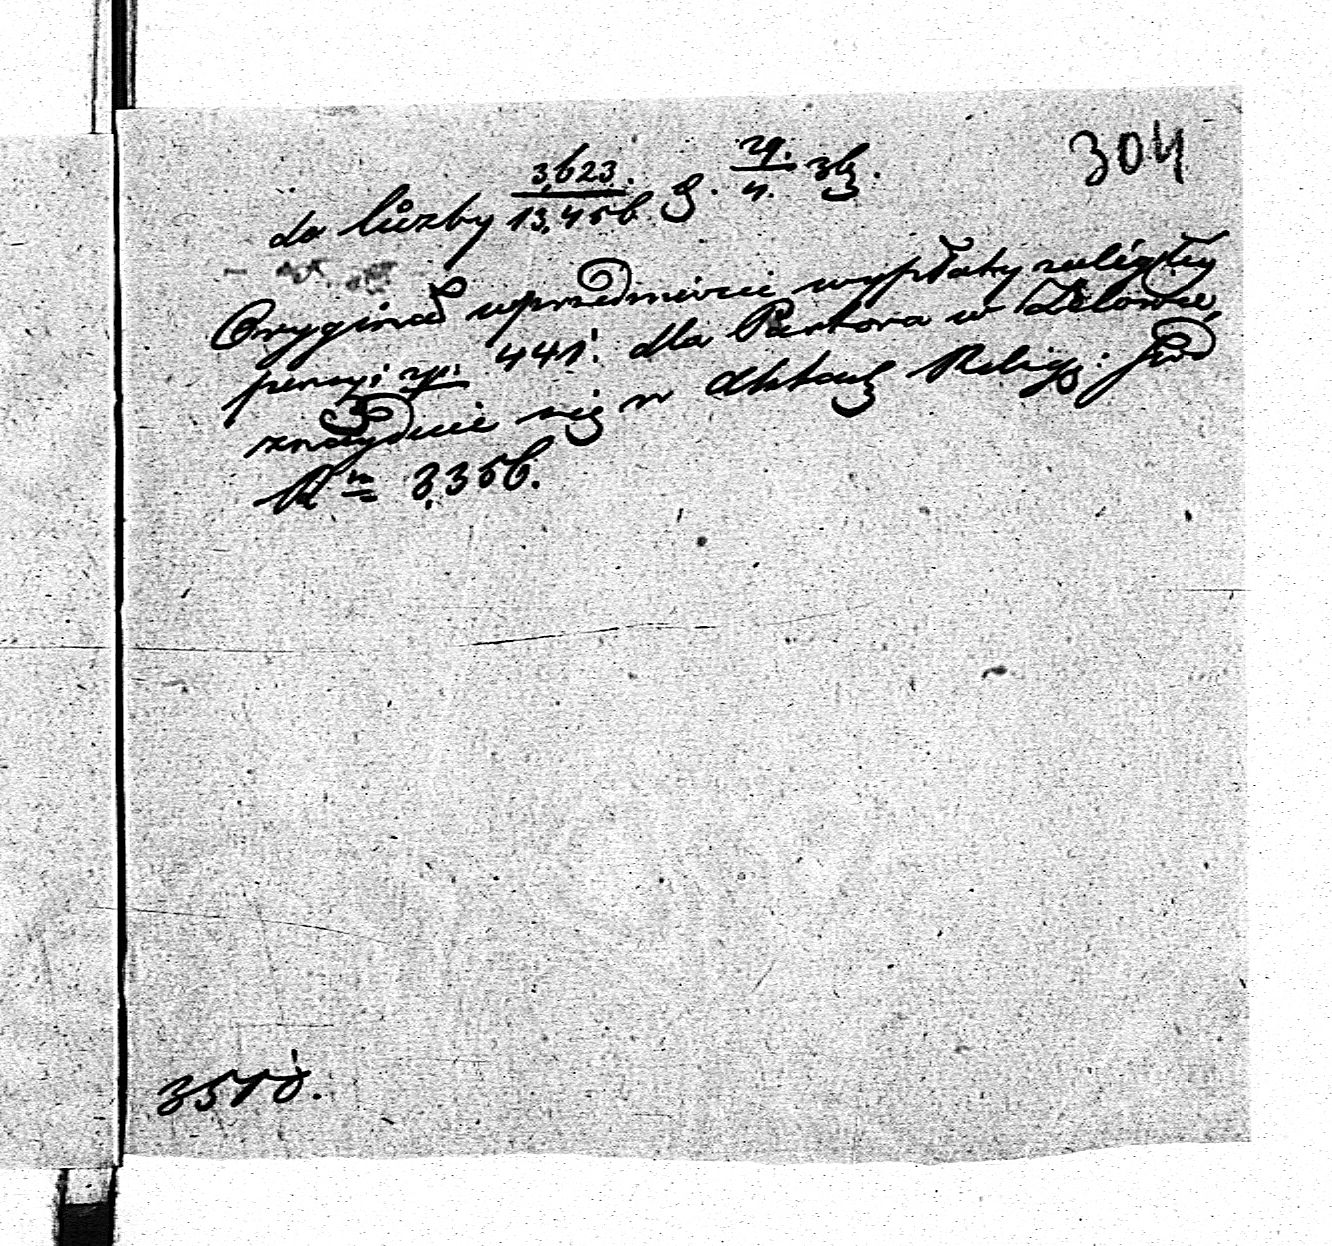 304
do liczby 3,623. / 13,456
Oryginał w przedmiocie wypłaty zaległey
pensyi zp. 441. dla Pastora w Zelowie,
znayduie się w Aktach Religij: pod
N 3,356.
3570.